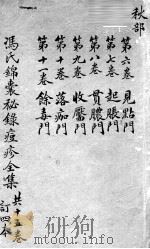 秋部
第六卷 見點門
第七卷 起脹門
第八卷 貫膿門
第九卷 收靨門
第十卷 落痂門
第十一卷 餘毒門
馮氏錦囊秘錄痘疹全集 共十五卷 訂四本